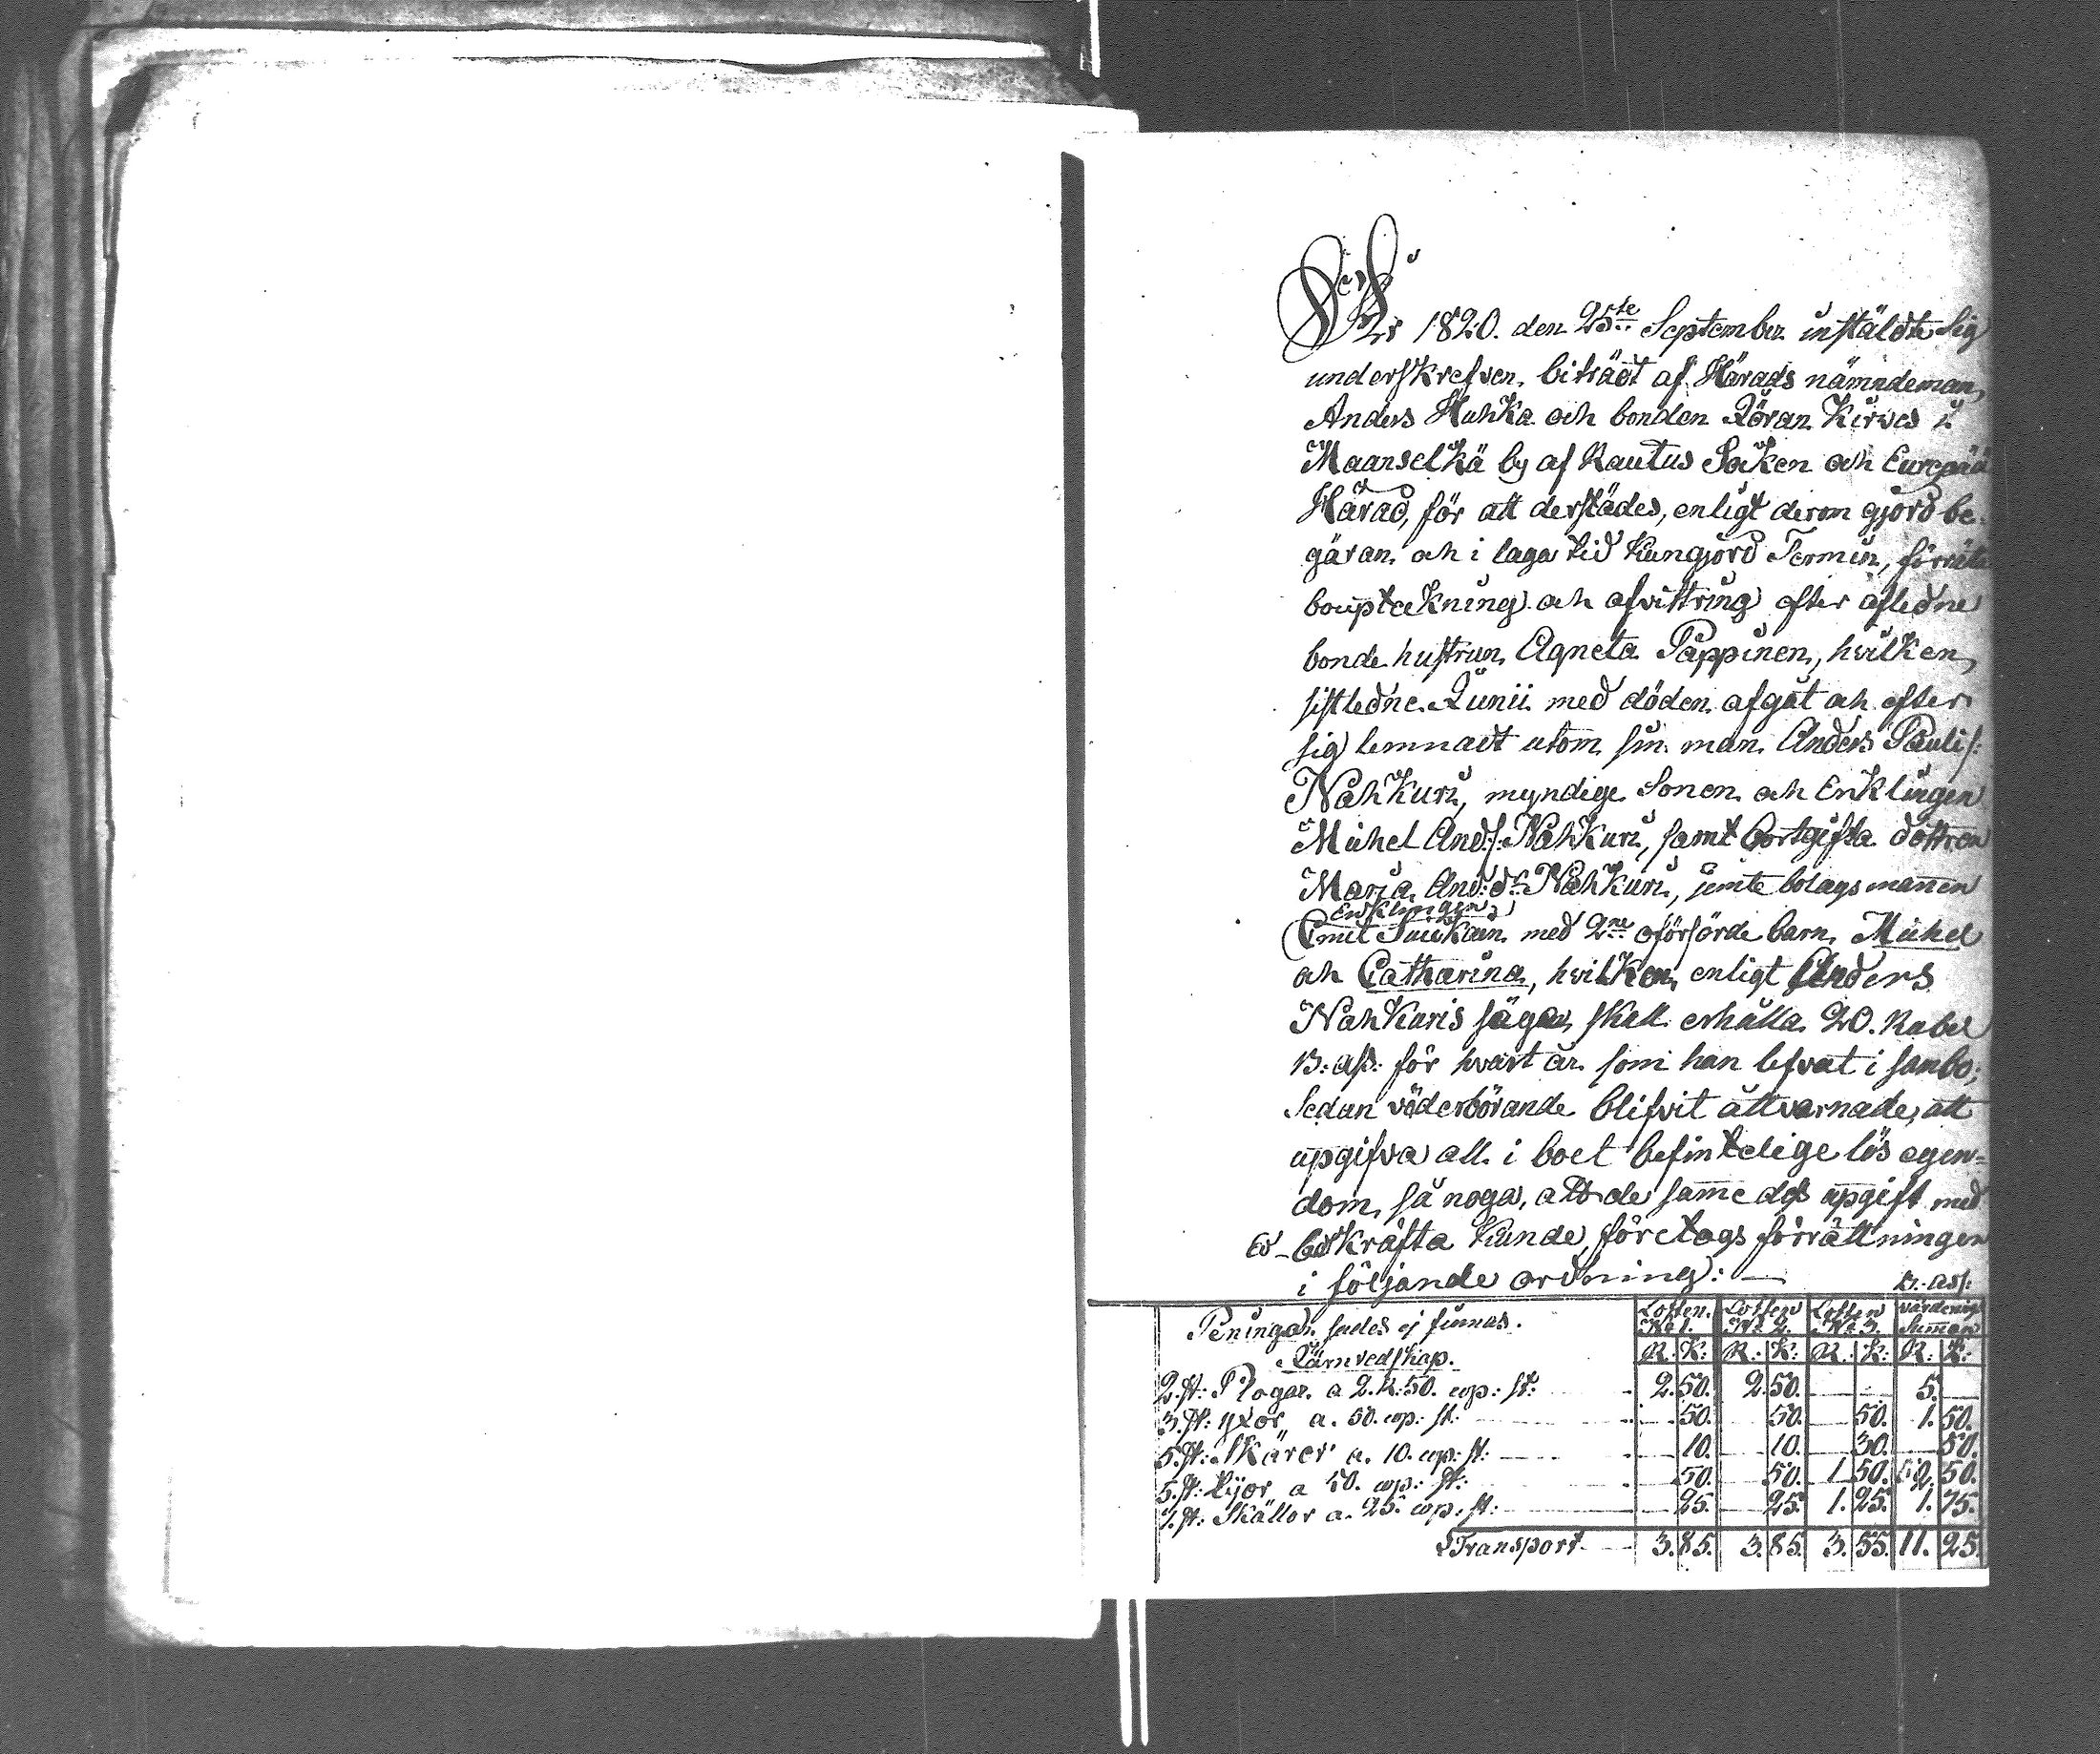 År 1820. den 25te September instäldte sig
underskrefven, biträdt af Härads nämndeman,
Anders Huhka och bonden Jöran Kirves i
Maanselkä by af Rautus Soken och Eurepää
Härad, för att derstädes, enligt derom gjord be-
gäran och i laga tid kungjord Termin, förräta
boupteckning och afvittring efter afledne
bonde hustrun Agneta Pappinen, hvilken,
sistledne Junii med döden afgåt och efter
sig lemnadt utom sin man Anders Pauli s:
Nahkuri, myndige Sonen och Enklingen
Michel And:s: Nahkuri, samt bortgifta dottren
Marja And:dr Nahkuri, jemte bolagsmannen
Enklingen
med 2ne oförsörde barn, Michel
och Catharina, hvilken, enligt Anders
Nahkuris sägen, skall erhålla 20. Rubel
B: ass: för hvart år som han lefvat i sanbo;
Sedan vöderbörande blifvit åttvarnade, att
upgifva all i boet befintelige lös egen-
dom, så noga, att de samme des upgift med
Ed bekräfta kunde, företogs förrättningen
i följande ordning: — B: Ass:
Peningar sades ej finnas. Lotten No 1. Lotten No 2. Lotten No 3. värderings Summan
Järnredskap. R: K: R: K: R: K: R: K:
2. st: Plogar a 2. R: 50. cop: st: 2. 50. 2. 50. — — 5. —
3. st: yxor a. 50. cop: st: — 50. — 50. — 50. 1. 50.
5. st: Skäror a. 10. cop: st: — 10. — 10. — 30. — 50.
5. st: Lijor a 50. cop: st: — 50. — 50. 1. 50. 2. 50.
7. st: Skällor a. 25. cop. st: — 25. — 25. 1. 25. 1. 75.
Transport — 3. 85. 3. 85. 3. 55. 11. 25.